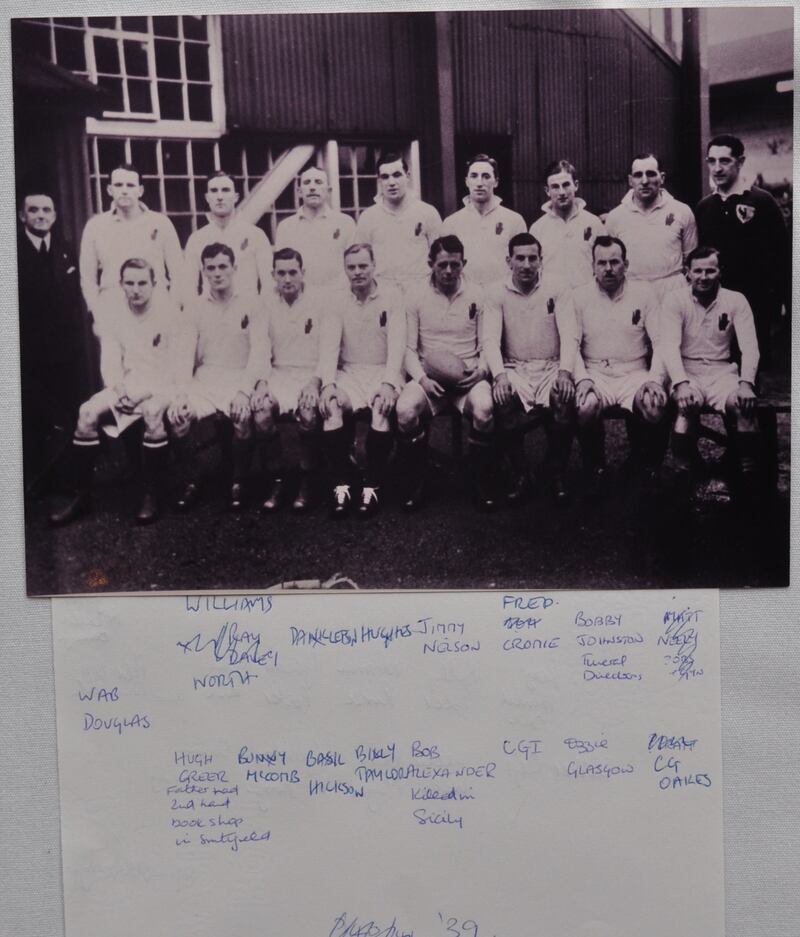 WILLIAMS
RAY
DALEY
NORTH
HUGHES
JIMMY
NELSON
FRED.
CROMIE
BOBBY
JOHNSTON
Funeral
Directors
MATT
NEELY
WAB
DOUGLAS
HUGH
GREER
Father had
2nd hand
book shop
in Smithfield
BUNNY
McCOMB
BASIL
HICKSON
BILLY
TAYLOR
BOB
ALEXANDER
Killed in
Sicily
CGI
Ozzie
GLASGOW
CG
OAKES
'39